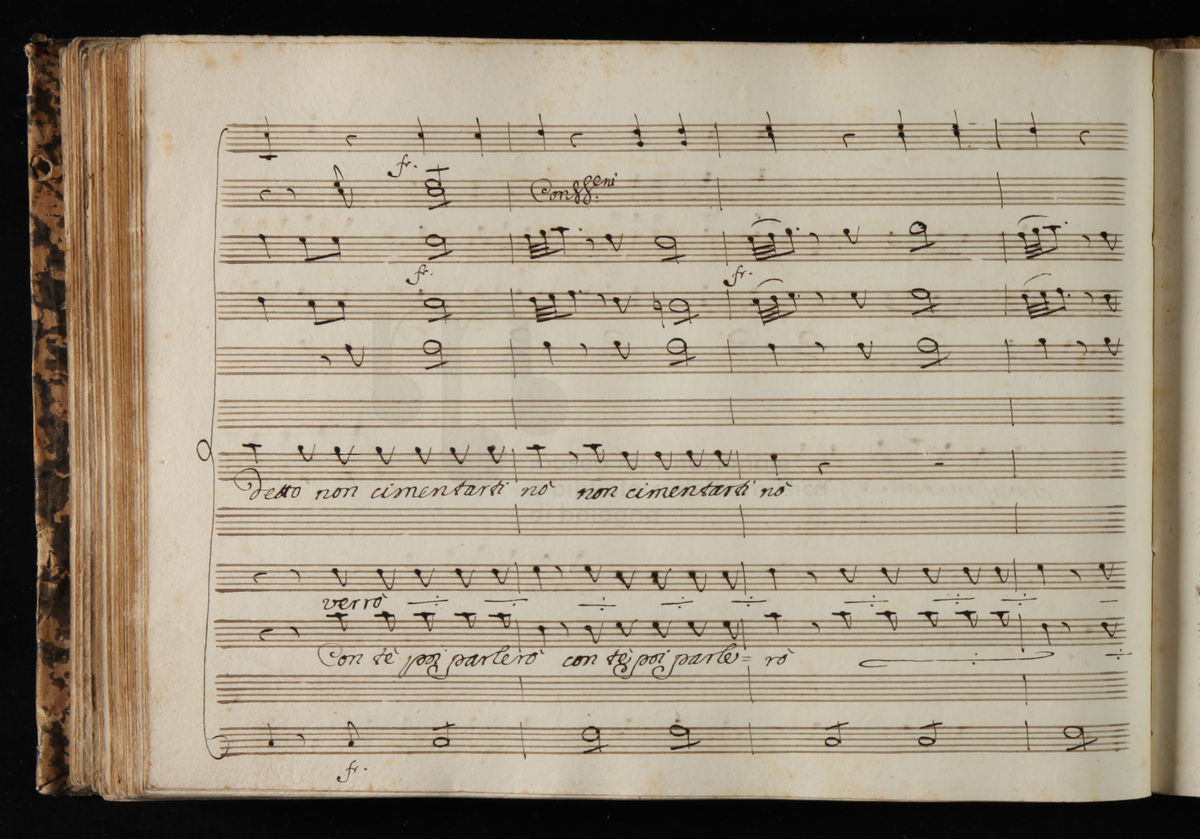 fr.
Con gg.ni
fr.
fr.
detto non cimentarti nò non cimentarti nò
verrò
Con tè poi parlerò con tè poi parle= rò
fr.